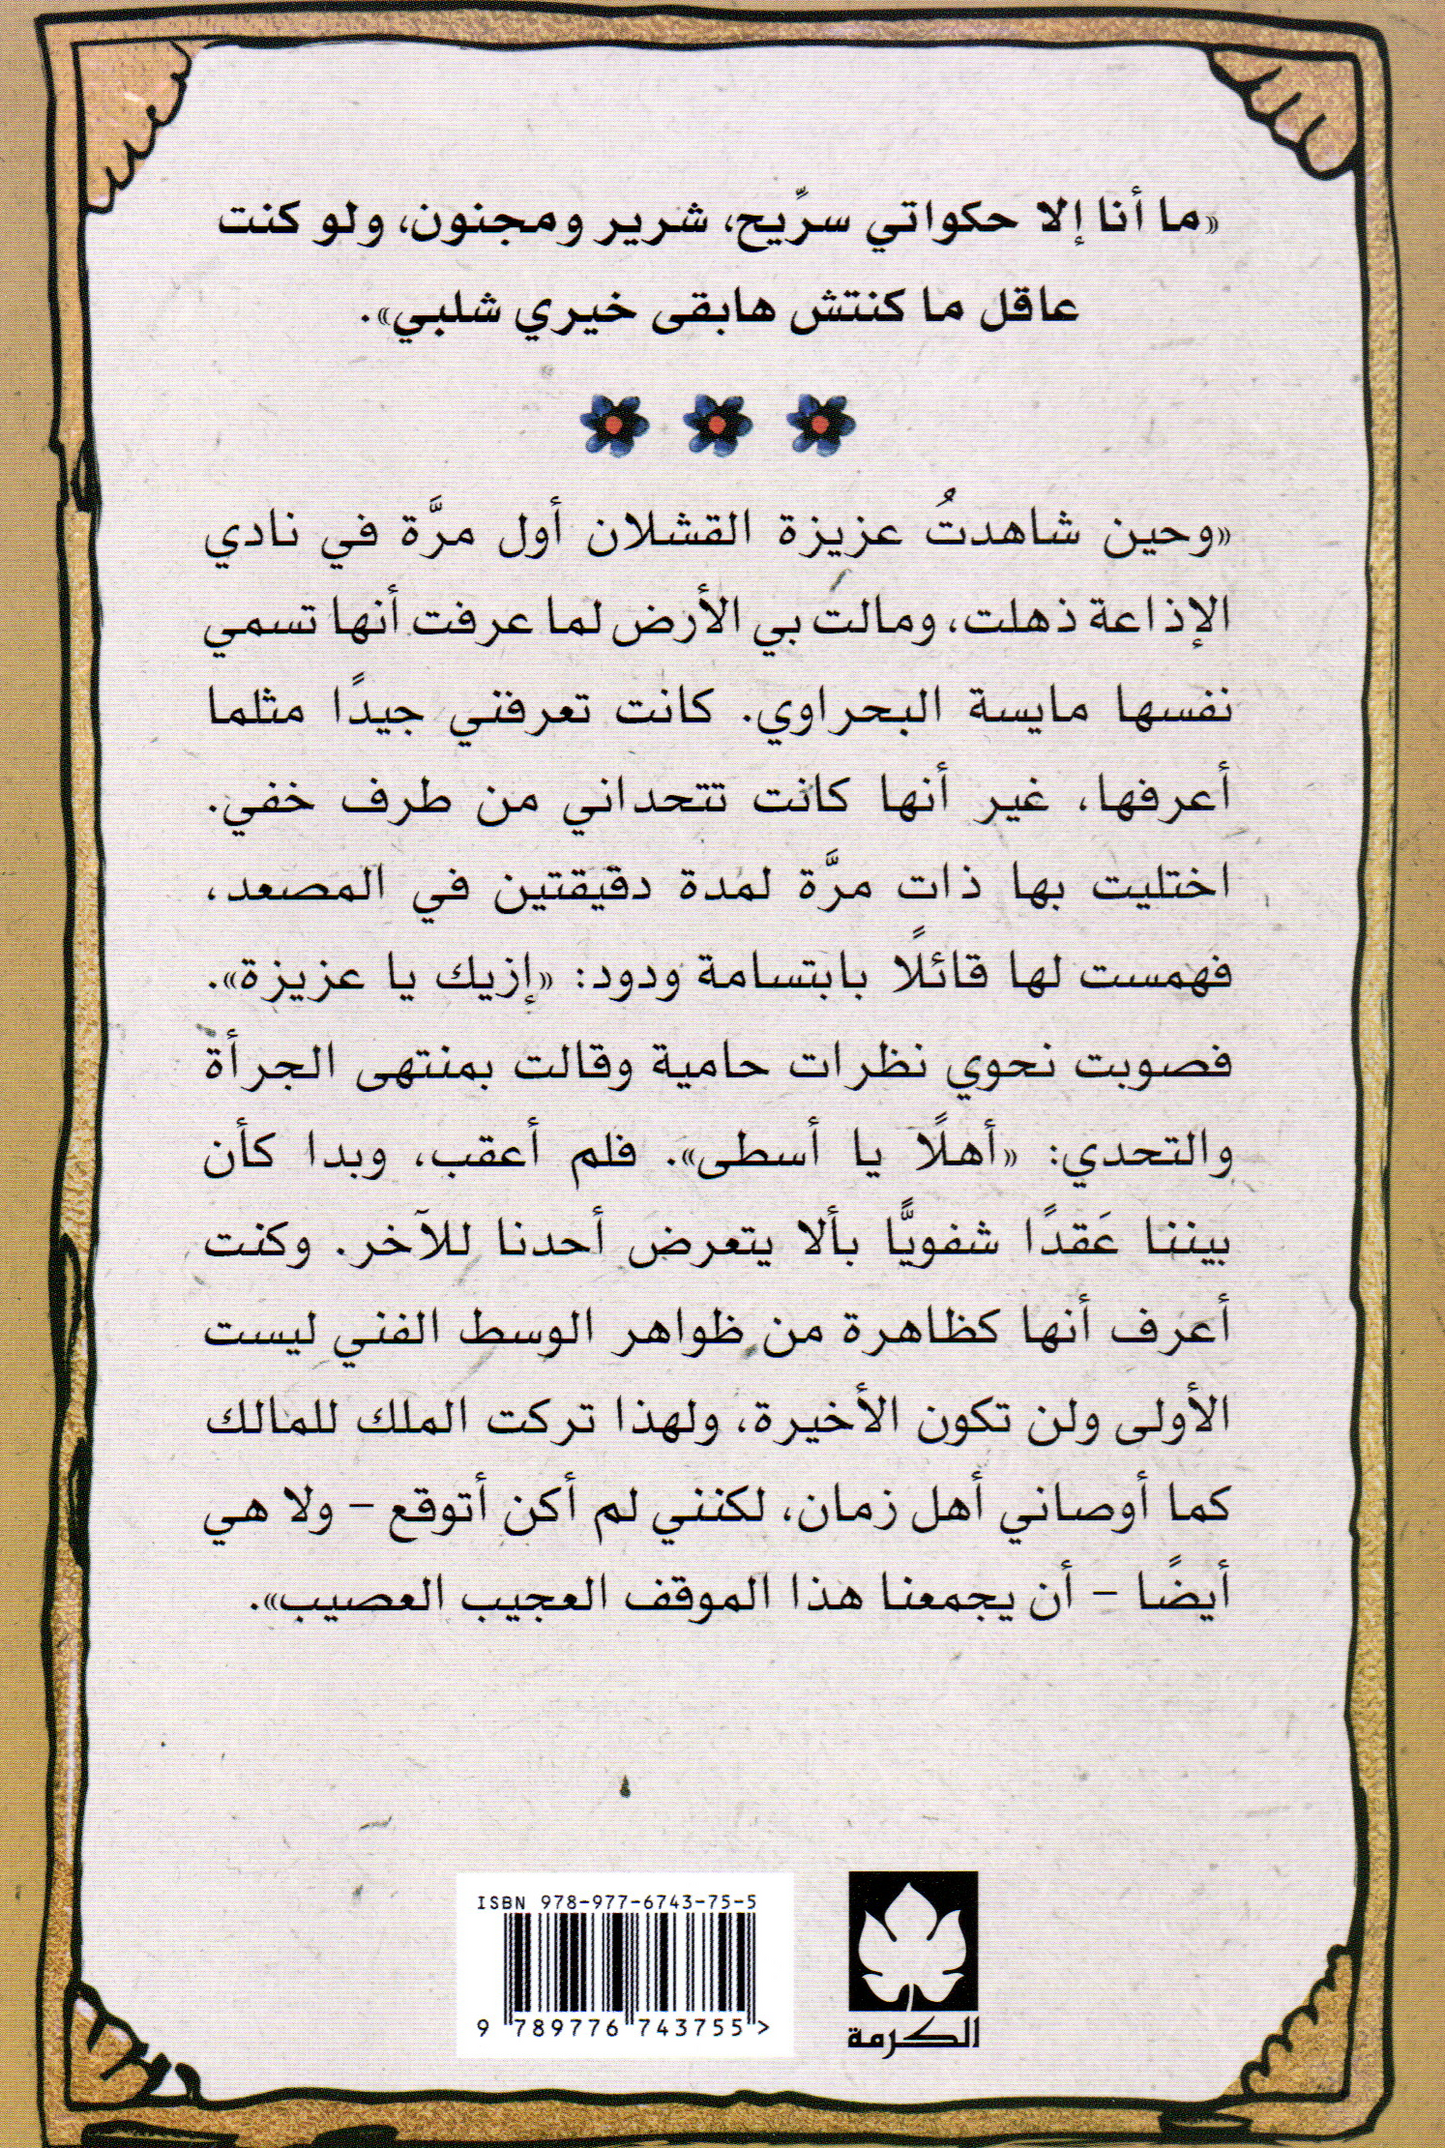 «ما أنا إلا حكواتي سرِّيح، شرير ومجنون، ولو كنت
عاقل ما كنتش هابقى خيري شلبي».
«وحين شاهدتُ عزيزة القشلان أول مرَّة في نادي
الإذاعة ذهلت، ومالت بي الأرض لما عرفت أنها تسمي
نفسها مايسة البحراوي. كانت تعرفني جيدًا مثلما
أعرفها، غير أنها كانت تتحداني من طرف خفي.
اختليت بها ذات مرَّة لمدة دقيقتين في المصعد،
فهمست لها قائلًا بابتسامة ودود: «إزيك يا عزيزة».
فصوبت نحوي نظرات حامية وقالت بمنتهى الجرأة
والتحدي: «أهلًا يا أسطى». فلم أعقب، وبدا كأن
بيننا عَقدًا شفويًّا بألا يتعرض أحدنا للآخر. وكنت
أعرف أنها كظاهرة من ظواهر الوسط الفني ليست
الأولى ولن تكون الأخيرة، ولهذا تركت الملك للمالك
كما أوصاني أهل زمان، لكنني لم أكن أتوقع – ولا هي
أيضًا – أن يجمعنا هذا الموقف العجيب العصيب».
ISBN 978-977-6743-75-5
9 789776 743755 >
الكرمة